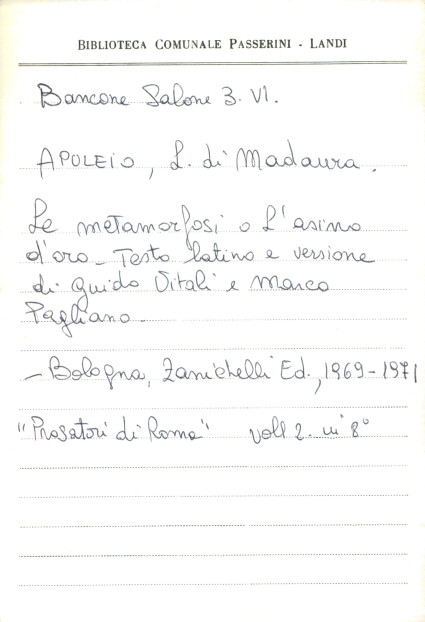 BIBLIOTECA COMUNALE PASSERINI - LANDI
Bancone Salone 3. VI.
APULEIO, L. di Madaura.
Le metamorfosi o L'asino
d'oro - Testo latino e versione
di Guido Vitali e Marco
Pagliano -
- Bologna, Zanichelli Ed., 1969 - 1971
"Prosatori di Roma" voll 2. in 8°